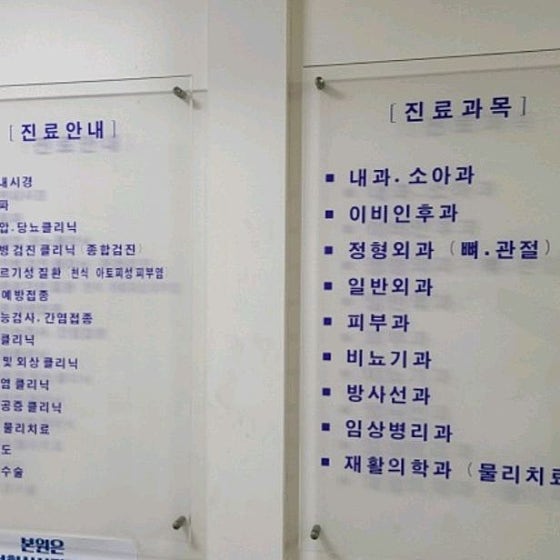 [진료안내]
내시경
파
압.당뇨클리닉
병 검진 클리닉 (종합검진)
르기성 질환 천식 아토피성 피부염
예방접종
능검사. 간염접종
클리닉
및 외상 클리닉
염 클리닉
공증 클리닉
물리치료
도
수술
본원은
[진료과목]
■ 내과.소아과
■ 이비인후과
■ 정형외과 (뼈.관절)
■ 일반외과
■ 피부과
■ 비뇨기과
■ 방사선과
■ 임상병리과
■ 재활의학과 (물리치료